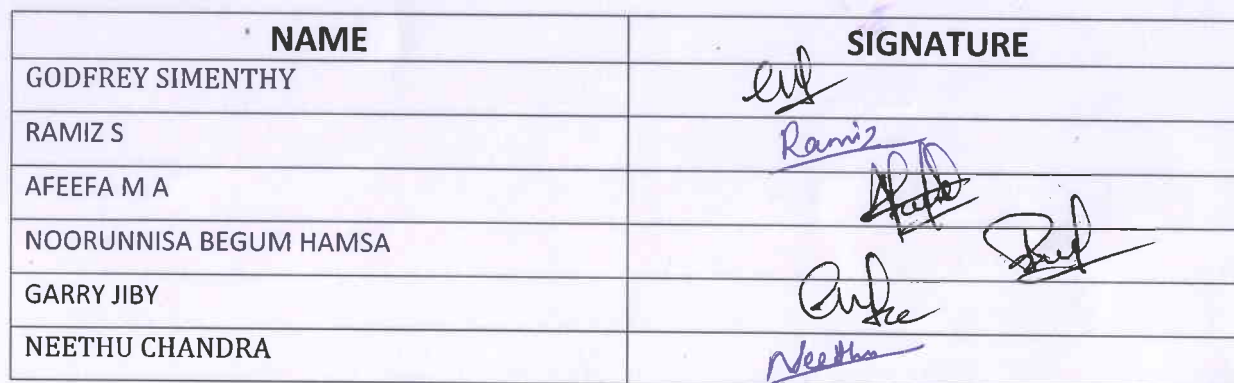 NAME SIGNATURE
GODFREY SIMENTHY
RAMIZ S Ramiz
AFEEFA M A
NOORUNNISA BEGUM HAMSA
GARRY JIBY
NEETHU CHANDRA Neethu